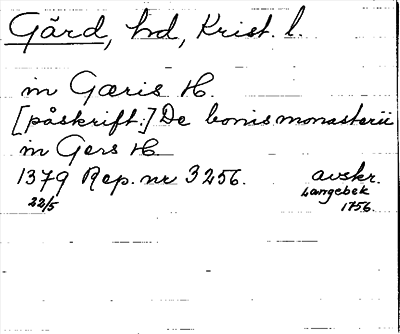 Gärd, hd, Krist. l.
in Gæris H.
[påskrift:] De bonis monasterii
in Gers H
1379 Rep. nr 3256. avskr.
22/5 Langebek
1756.